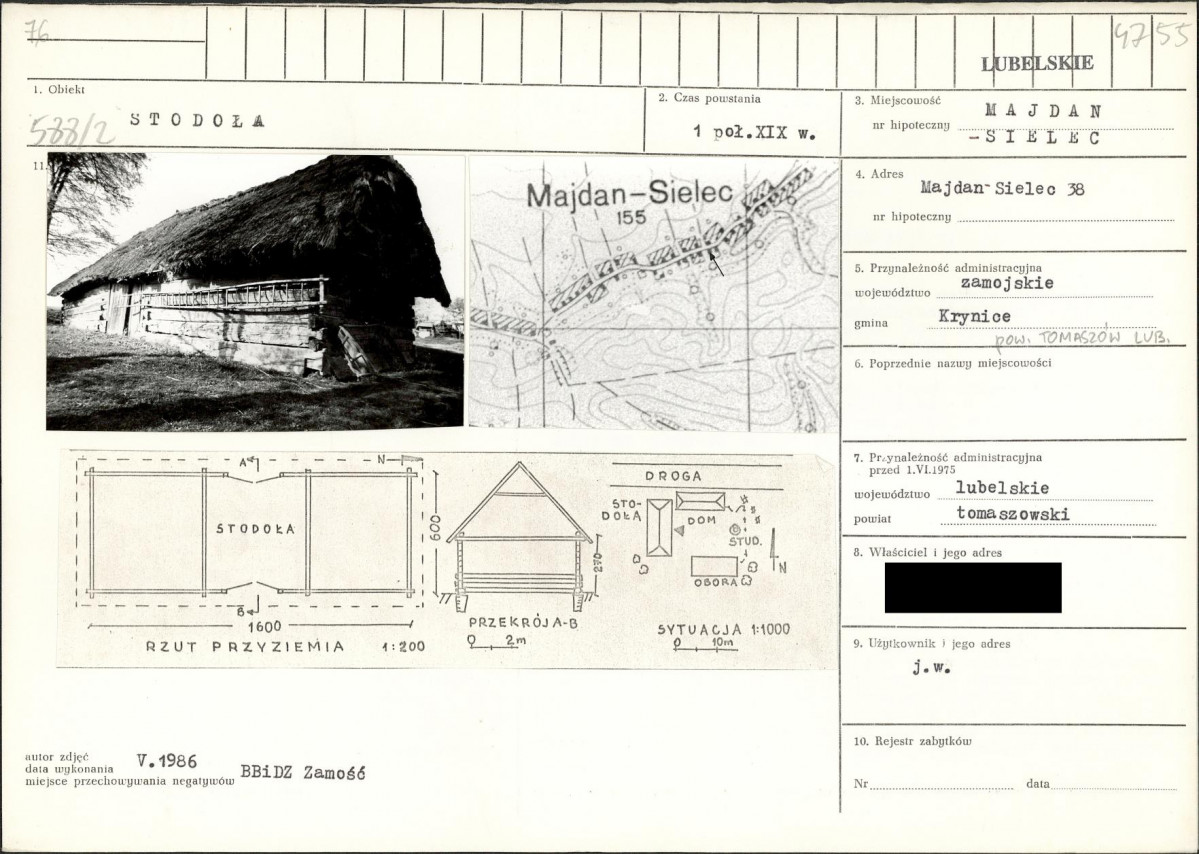 76
4755
LUBELSKIE
1. Obiekt
588/2
STODOŁA
2. Czas powstania
1 poł.XIX w.
3. Miejscowość
MAJDAN
nr hipoteczny
-SIELEC
11.
Majdan-Sielec
155
4. Adres
Majdan-Sielec 38
nr hipoteczny
5. Przynależność administracyjna
województwo zamojskie
gmina Krynice
pow. TOMASZÓW LUB.
6. Poprzednie nazwy miejscowości
7. Przynależność administracyjna
przed 1.VI.1975
województwo lubelskie
powiat tomaszowski
8. Właściciel i jego adres
9. Użytkownik i jego adres
j.w.
10. Rejestr zabytków
Nr data
A
N
STODOŁA
B
1600
RZUT PRZYZIEMIA 1:200
600
PRZEKRÓJ A-B
0 2m
DROGA
STO-
DOŁA
DOM
STUD.
N
OBORA
SYTUACJA 1:1000
0 10m
autor zdjęć
data wykonania V.1986
miejsce przechowywania negatywów BBiDZ Zamość